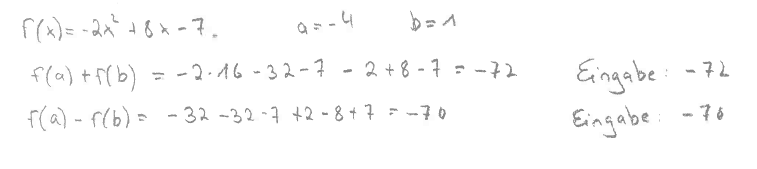 f(x) = -2x² + 8x - 7. a = -4 b = 1
f(a) + f(b) = -2·16 - 32 - 7 - 2 + 8 - 7 = -72 Eingabe: -72
f(a) - f(b) = -32 - 32 - 7 + 2 - 8 + 7 = -70 Eingabe: -70